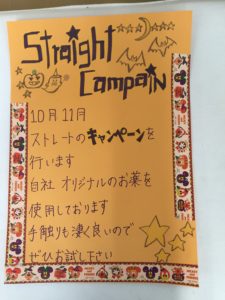 Straight
Campain
10月 11月
ストレートのキャンペーンを
行います
自社 オリジナルのお薬を
使用しております
手触りも凄く良いので
ぜひお試し下さい